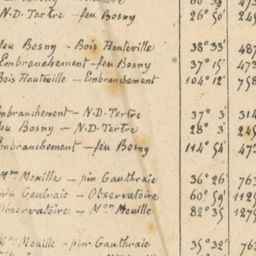 N.D. Tertre — feu Bosny 26° 50'
feu Bosny — Bois Hauteville 38° 33' 487
Embranchement — feu Bosny 37° 15' 473
Bois Hauteville — Embranchement 104° 12' 758
Embranchement — N.D. Tertre 37° 3' 314
feu Bosny — N.D. Tertre 28° 3' 249
Embranchement — feu Bosny 114° 54' 473
Mon Meuille — pin Gauthraie 36° 26' 763
pin Gauthraie — Observatoire 60° 59' 1129
Observatoire — Mon Meuille 82° 35' 1279
Mon Meuille — pin Gauthraie 35° 32' 763